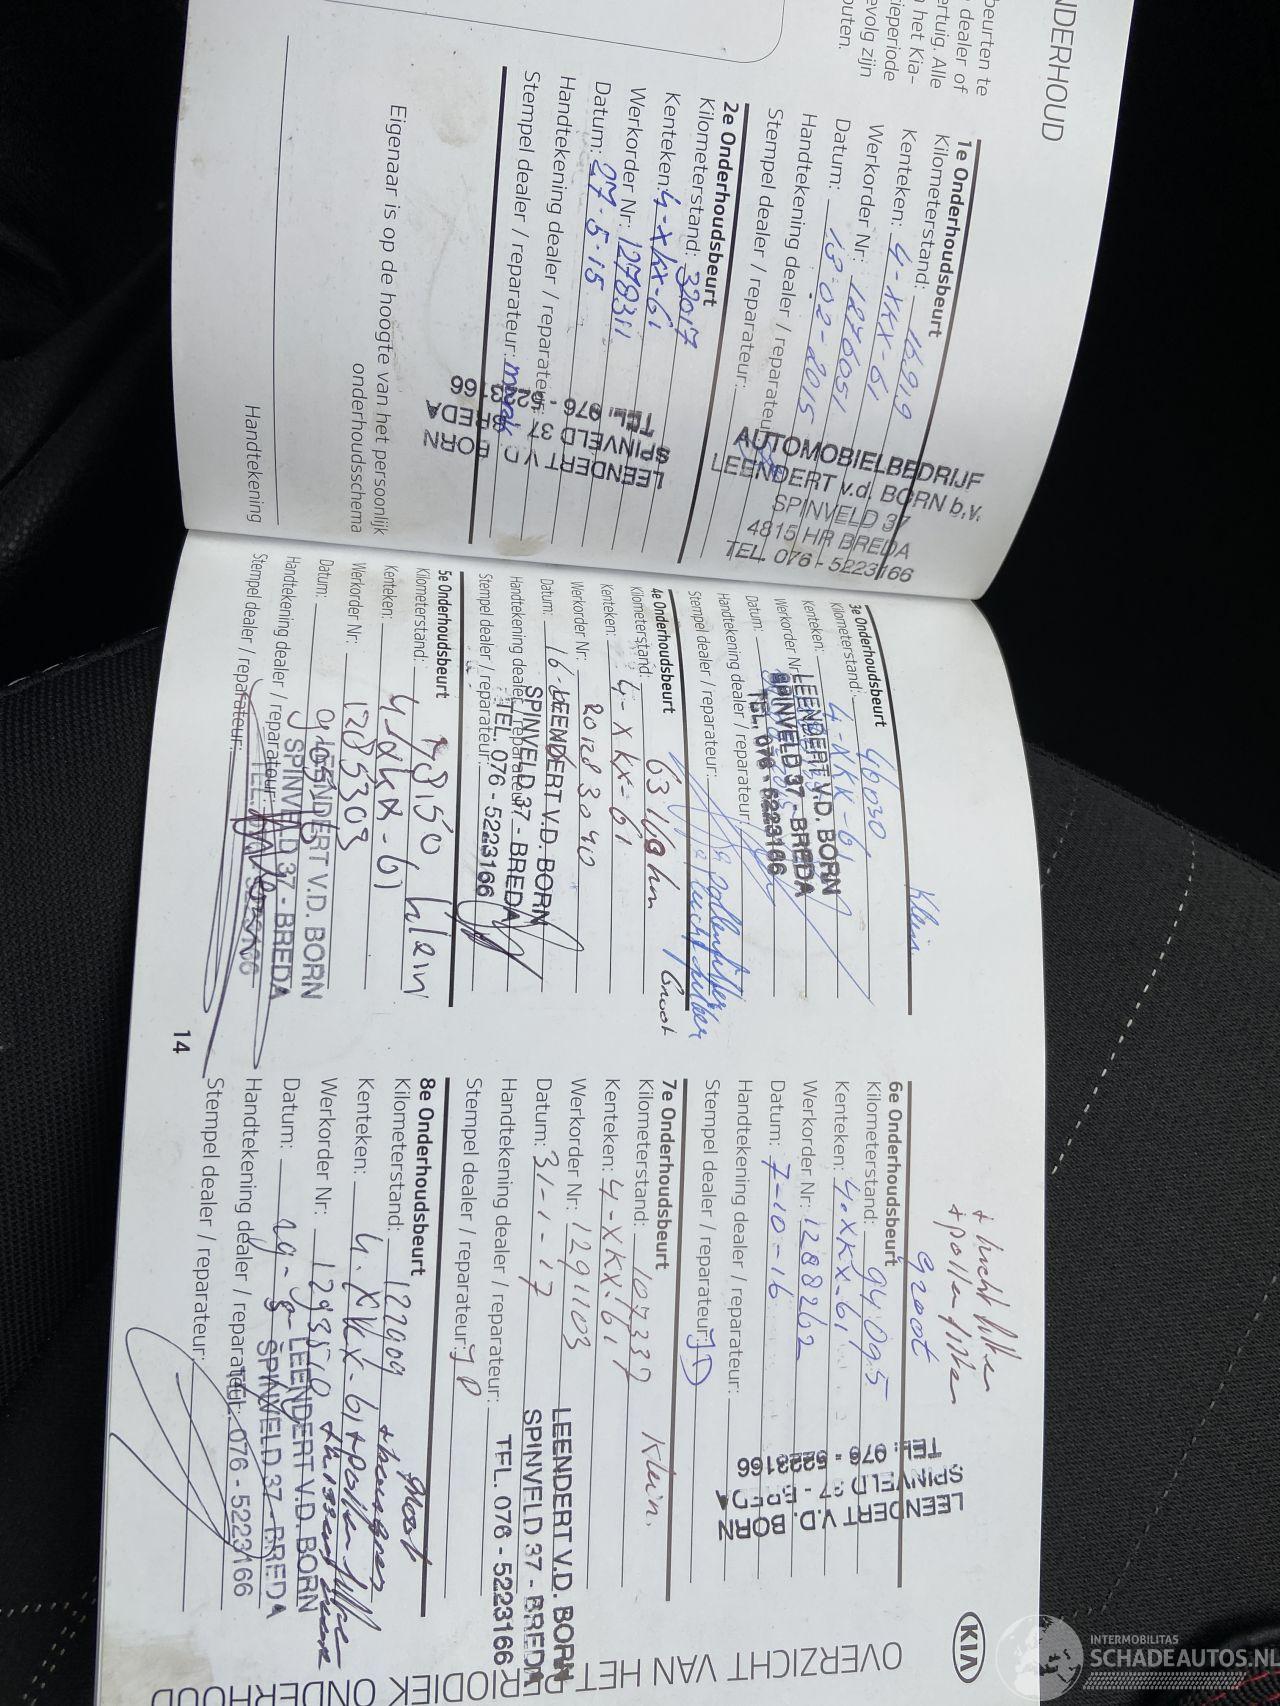 NDERHOUD
beurten te
dealer of
ertuig. Alle
het Kia-
ieperiode
evolg zijn
outen.
1e Onderhoudsbeurt
Kilometerstand: 16919
Kenteken: 4-XKX-61
Werkorder Nr: 1276051
Datum: 18-02-2015
Handtekening dealer / reparateur:
Stempel dealer / reparateur:
AUTOMOBIELBEDRIJF
LEENDERT v.d. BORN b.v.
SPINVELD 37
4815 HR BREDA
TEL. 076 - 5223166
2e Onderhoudsbeurt
Kilometerstand: 32017
Kenteken: 4-XKX-61
Werkorder Nr: 1278311
Datum: 27-5-15
Handtekening dealer / reparateur:
Stempel dealer / reparateur:
LEENDERT V.D. BORN
SPINVELD 37 - BREDA
TEL: 076 - 5223166
Eigenaar is op de hoogte van het persoonlijk
onderhoudsschema
Handtekening
Klein
3e Onderhoudsbeurt
Kilometerstand: 46030
Kenteken: 4-XKX-61
Werkorder Nr:
Datum:
Handtekening dealer / reparateur:
Stempel dealer / reparateur:
LEENDERT V.D. BORN
SPINVELD 37 - BREDA
TEL. 076 - 5223166
4e Onderhoudsbeurt
Groot
Kilometerstand:
Kenteken: 4-XKX-61
Werkorder Nr:
Datum: 16-
Handtekening dealer / reparateur:
Stempel dealer / reparateur:
LEENDERT V.D. BORN
SPINVELD 37 - BREDA
TEL. 076 - 5223166
5e Onderhoudsbeurt
Kilometerstand: 78150 klein
Kenteken: 4-XKX-61
Werkorder Nr: 1285303
Datum:
Handtekening dealer / reparateur:
Stempel dealer / reparateur:
LEENDERT V.D. BORN
SPINVELD 37 - BREDA
14
+ luchtfilter
+ pollenfilter
groot
6e Onderhoudsbeurt
Kilometerstand: 94095
Kenteken: 4-XKX-61
Werkorder Nr: 1288262
Datum: 7-10-16
Handtekening dealer / reparateur:
Stempel dealer / reparateur: JD
LEENDERT V.D. BORN
SPINVELD 37 - BREDA
TEL: 076 - 5223166
7e Onderhoudsbeurt
Kilometerstand: 107337 Klein.
Kenteken: 4-XKX-61
Werkorder Nr: 1291103
Datum: 31-1-17
Handtekening dealer / reparateur:
Stempel dealer / reparateur: JD
LEENDERT V.D. BORN
SPINVELD 37 - BREDA
TEL. 076 - 5223166
8e Onderhoudsbeurt
Groot
Kilometerstand: 122909
Kenteken: 4-XKX-61 + pollenfilter
Werkorder Nr:
Datum:
Handtekening dealer / reparateur:
Stempel dealer / reparateur:
LEENDERT V.D. BORN
SPINVELD 37 - BREDA
TEL. 076 - 5223166
KIA
OVERZICHT VAN HET PERIODIEK ONDERHOUD
INTERMOBILITAS
SCHADEAUTOS.NL